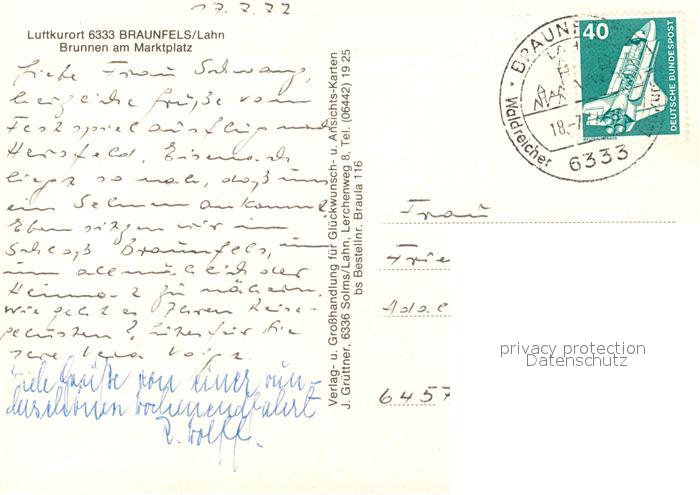 17.7.77
Luftkurort 6333 BRAUNFELS/Lahn
Brunnen am Marktplatz
Liebe Frau Schwanz,
herzliche Grüße vom
Festspielausflug nach
Hersfeld. Eisenach
liegt so nah, daß uns
ein Sehnen ankommt.
Eben sitzen wir im
Schloß Braunfels, um
uns allmählich der
Heimat zu nähern.
Wie geht es Ihren Reise-
gelüsten? Gutes für Sie
Ihre Vera
Viele Grüße von einer wun-
derschönen Wochenendfahrt
R. Wolff.
Verlag- u. Großhandlung für Glückwunsch- u. Ansichts-Karten
J. Grüttner, 6336 Solms/Lahn, Lerchenweg 8, Tel. (06442) 19 25
bs Bestellnr. Braula 116
BRAUNF
LAHN
18.-7.
Waldreicher
6333
40
DEUTSCHE BUNDESPOST
Frau
Frie
Adol
6457
privacy protection
Datenschutz